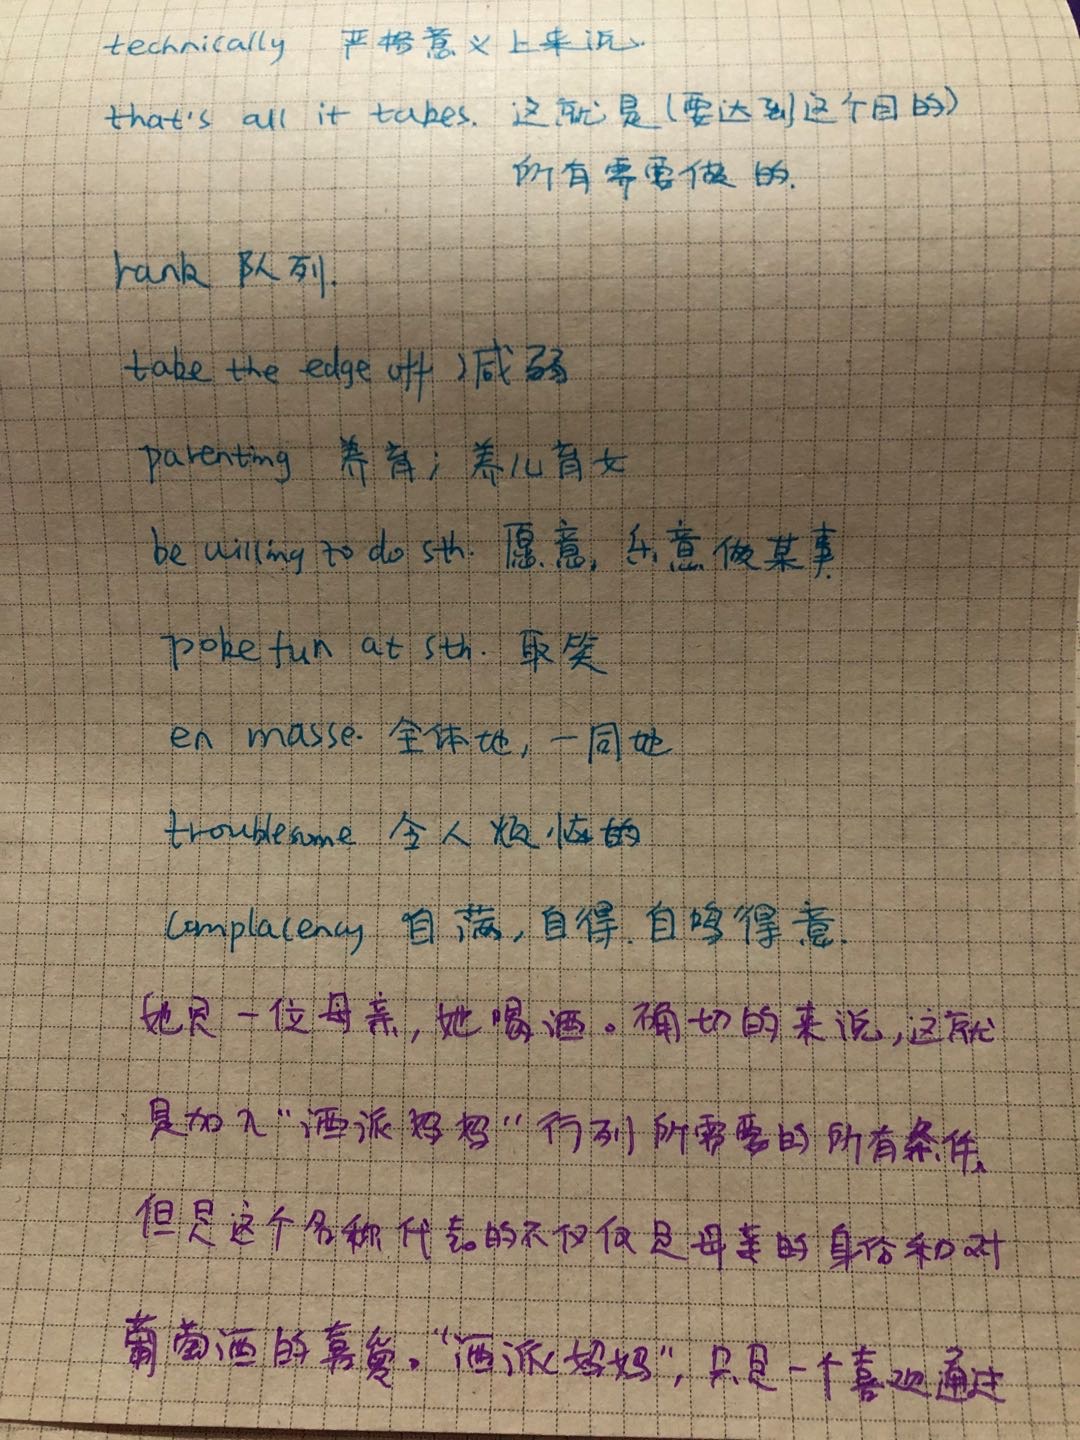 technically 严格意义上来说.
that's all it takes. 这就是(要达到这个目的)
所有需要做的.
rank 队列.
take the edge off 减弱
parenting 养育; 养儿育女
be willing to do sth. 愿意, 乐意做某事
poke fun at sth. 取笑
en masse. 全体地, 一同地
troublesome 令人烦恼的
complacency 自满, 自得. 自鸣得意.
她是一位母亲, 她喝酒。确切的来说, 这就
是加入“酒派妈妈”行列所需要的所有条件,
但是这个名称代表的不仅仅是母亲的身份和对
葡萄酒的喜爱。“酒派妈妈”, 只是一个喜欢通过